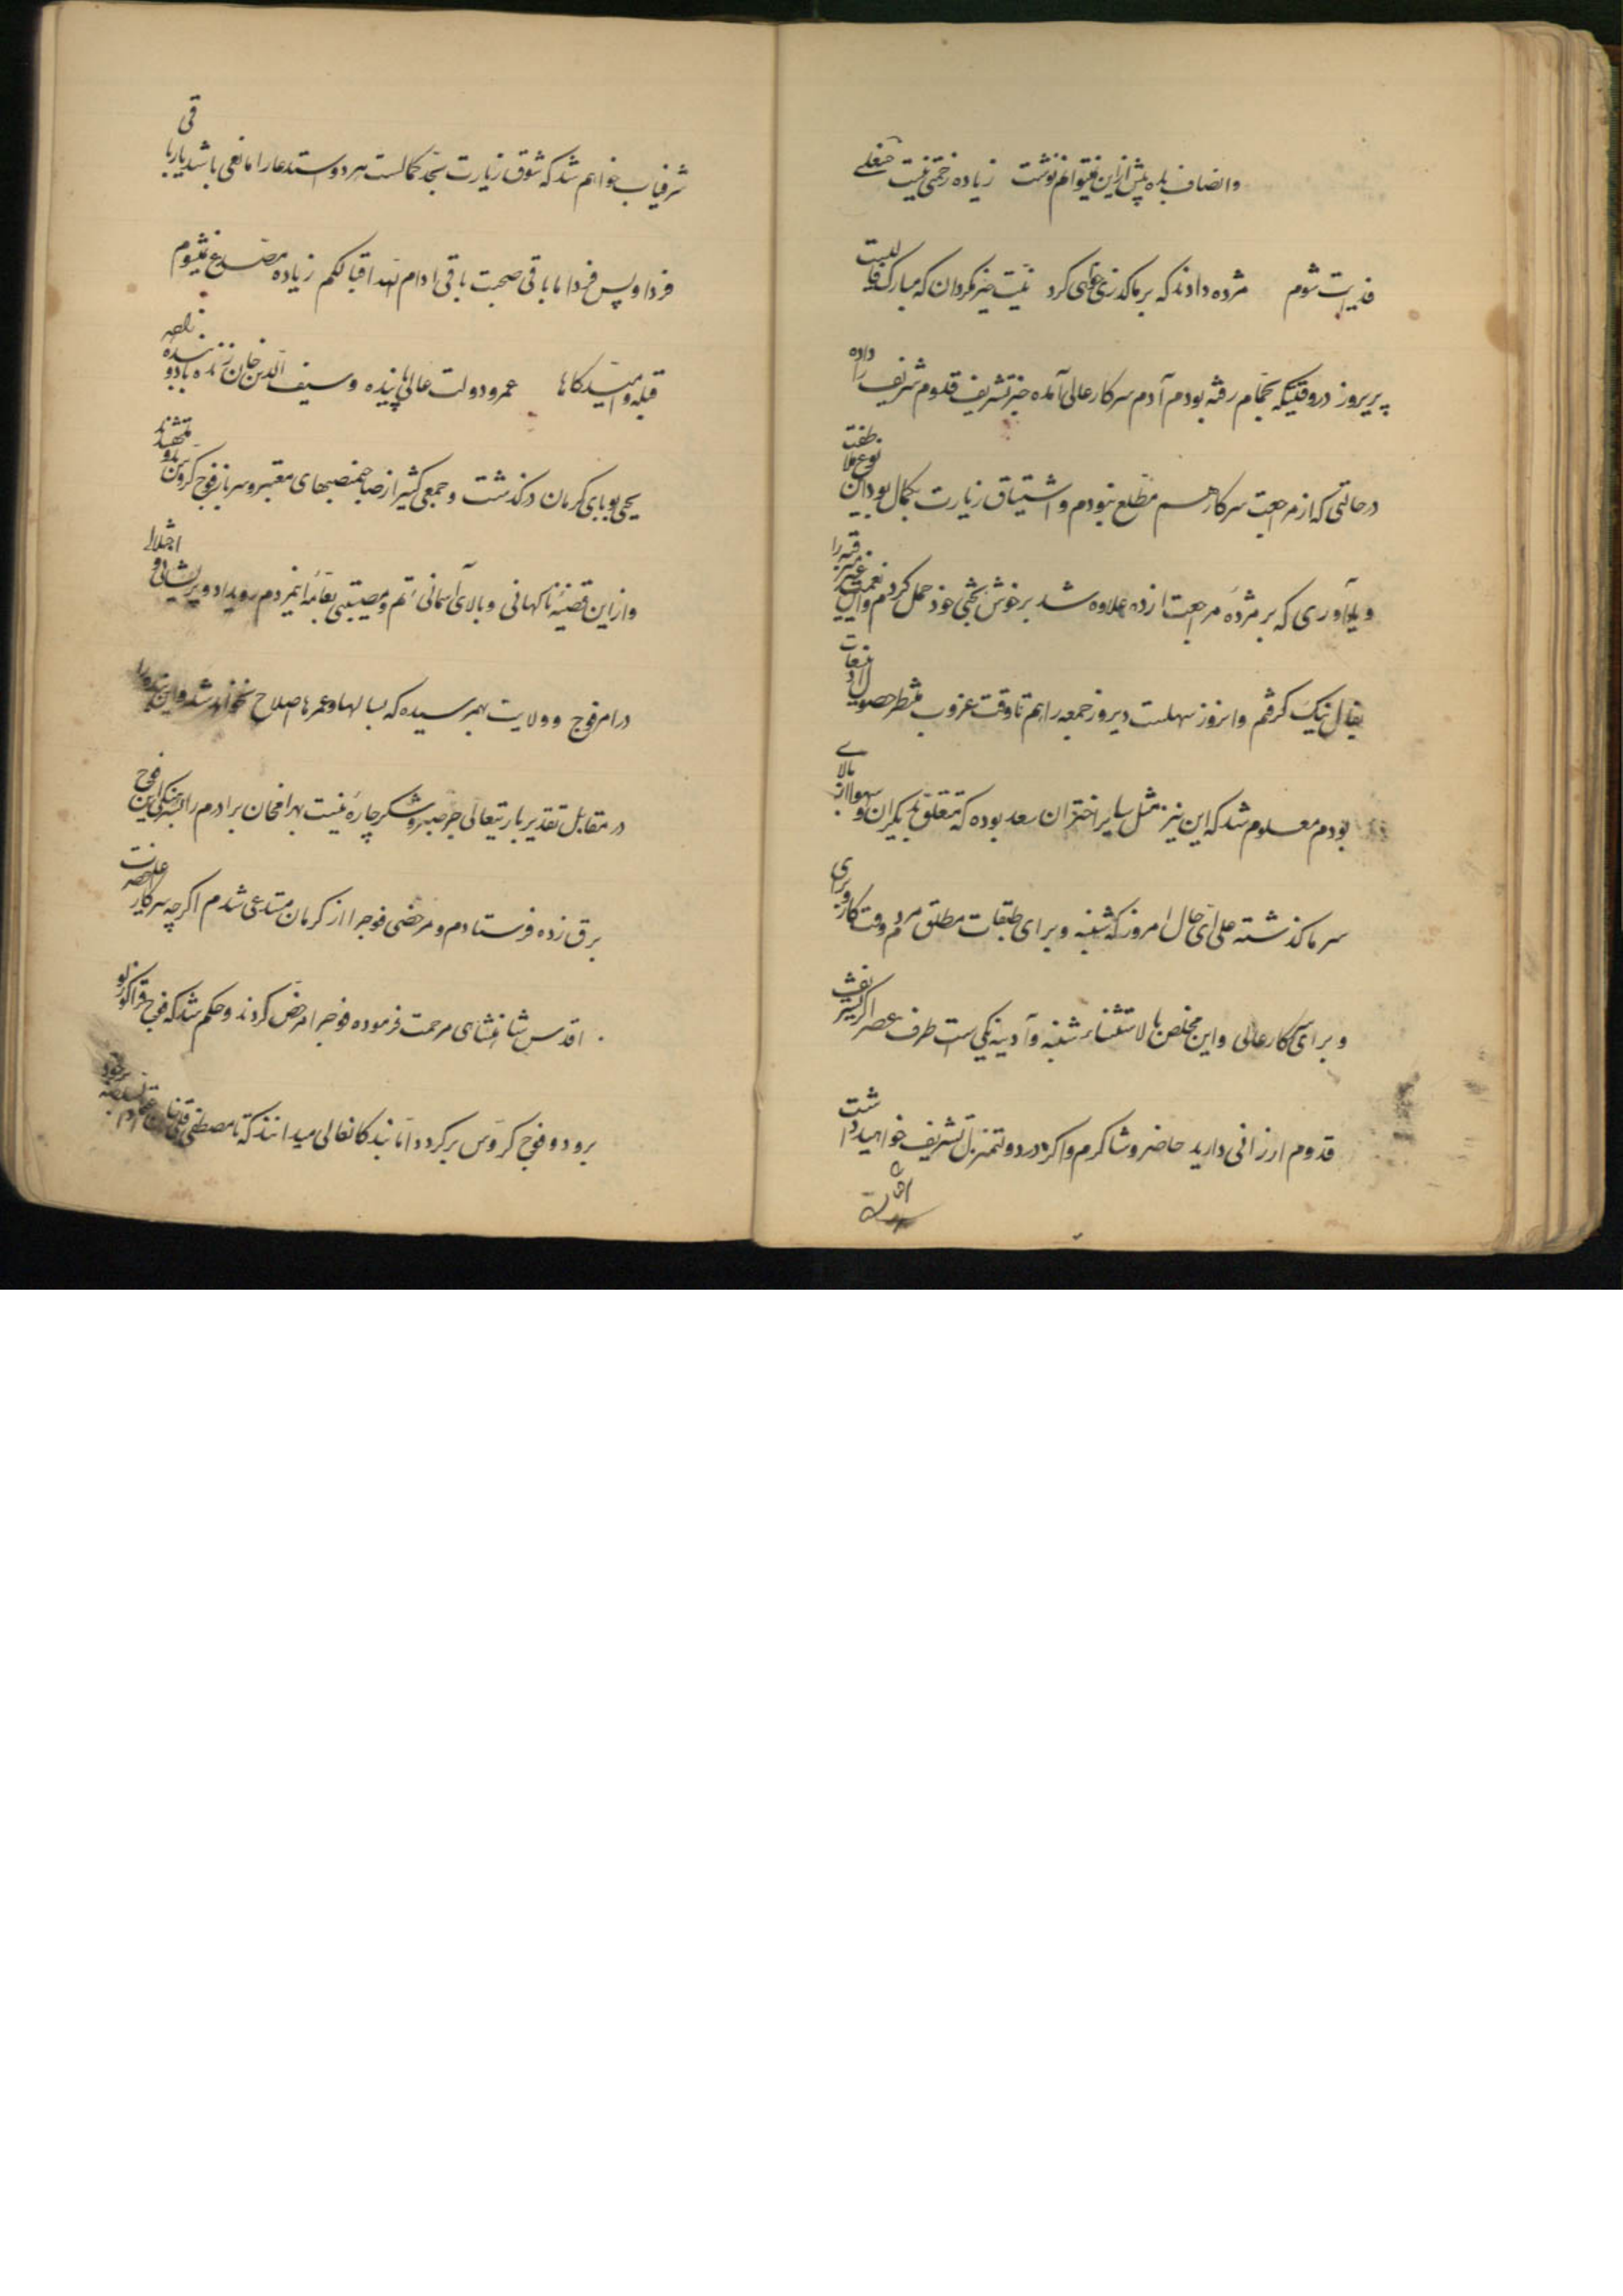 و انصاف بده بیش از این نمیتوانم نوشت زیاده زحمتی نیست
فدایت شوم مژده دادند که بر ما گذری خواهی کرد نیت خیر مگردان که مبارک فالیست
پریروز در وقتیکه بحمام رفته بودم آدم سرکار عالی آمده خبر تشریف قدوم شریف را داده
در حالتی که از مراجعت سرکار هم مطلع نبودم و اشتیاق زیارت بکمال بود این نوع ملاطفت
و یادآوری که بر مژده مراجعت زده علاوه شد بر خوش بختی خود حمل کردم و این نعمت غیر مترقبه را
بفال نیک گرفتم و امروز سهلست دیروز جمعه را هم تا وقت غروب منتظر حصول
بودم معلوم شد که این نیز مثل سایر اختران سعد بوده که متعلق بدیگران و سهوا از بالای
سر ما گذشته علی ای حال امروز که شنبه و برای طبقات مطلق مردم وقت کار
و برای سرکار عالی و این مخلص بالاستثناء شنبه و آدینه یکی است طرف عصر اگر تشریف
قدوم ارزانی دارید حاضر و شاکرم و اگر در دولتمنزل تشریف خواهید داشت
شرفیاب خواهم شد که شوق زیارت بحد کمالست هر دو استدعا را مانعی باشد یار باقی
فردا و پس فردا ما باقی صحبت باقی ادام الله اقبالکم زیاده مصدع نمیشوم
قبله و امیدگاها عمر و دولت عالی پاینده و سیف الدین خان زنده باد
یحیی بوبای کرمان درگذشت و جمعی کثیر از صاحبمنصبهای معتبر و سرباز فوج کروس
و از این قضیه ناگهانی و بلای آسمانی ستم و مصیبتی بعامه مردم رویداد و پریشانی و اختلال
در امر فوج و ولایت بهم رسیده که بسالها و عمرها اصلاح نخواهد شد و این بنده را
در مقابل تقدیر باریتعالی جز صبر و شکر چاره نیست بهرامخان برادرم را بسرهنگی این فوج
برق زده فرستادم و مرخصی فوجرا از کرمان مستدعی شدم اگر چه سرکار اعلیحضرت
اقدس شاهنشاهی مرحمت فرموده فوجرا مرخص کردند و حکم شد که فوج قراگوزلو
برود و فوج کروس برگردد اما بندگانعالی میدانند که تا مصطفی قلیخان